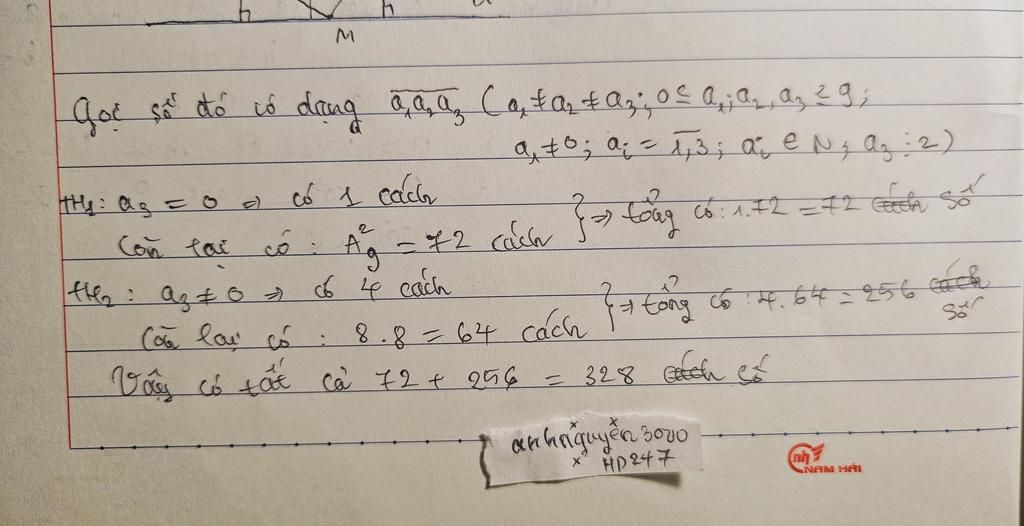 h M h
Gọi số đó có dạng a₁a₂a₃ (a₁ ≠ a₂ ≠ a₃; 0 ≤ a₁; a₂, a₃ ≤ 9;
a₁ ≠ 0; aᵢ = 1,3; aᵢ ∈ N; a₃ ⋮ 2)
TH₁: a₃ = 0 ⇒ có 1 cách
Còn lại có: A²₉ = 72 cách } ⇒ tổng có: 1.72 = 72 cách số
TH₂: a₃ ≠ 0 ⇒ có 4 cách
Còn lại có: 8.8 = 64 cách } ⇒ tổng có: 4.64 = 256 cách số
Vậy có tất cả 72 + 256 = 328 cách số
anhnguyên3000
HD247
nh NAM HẢI